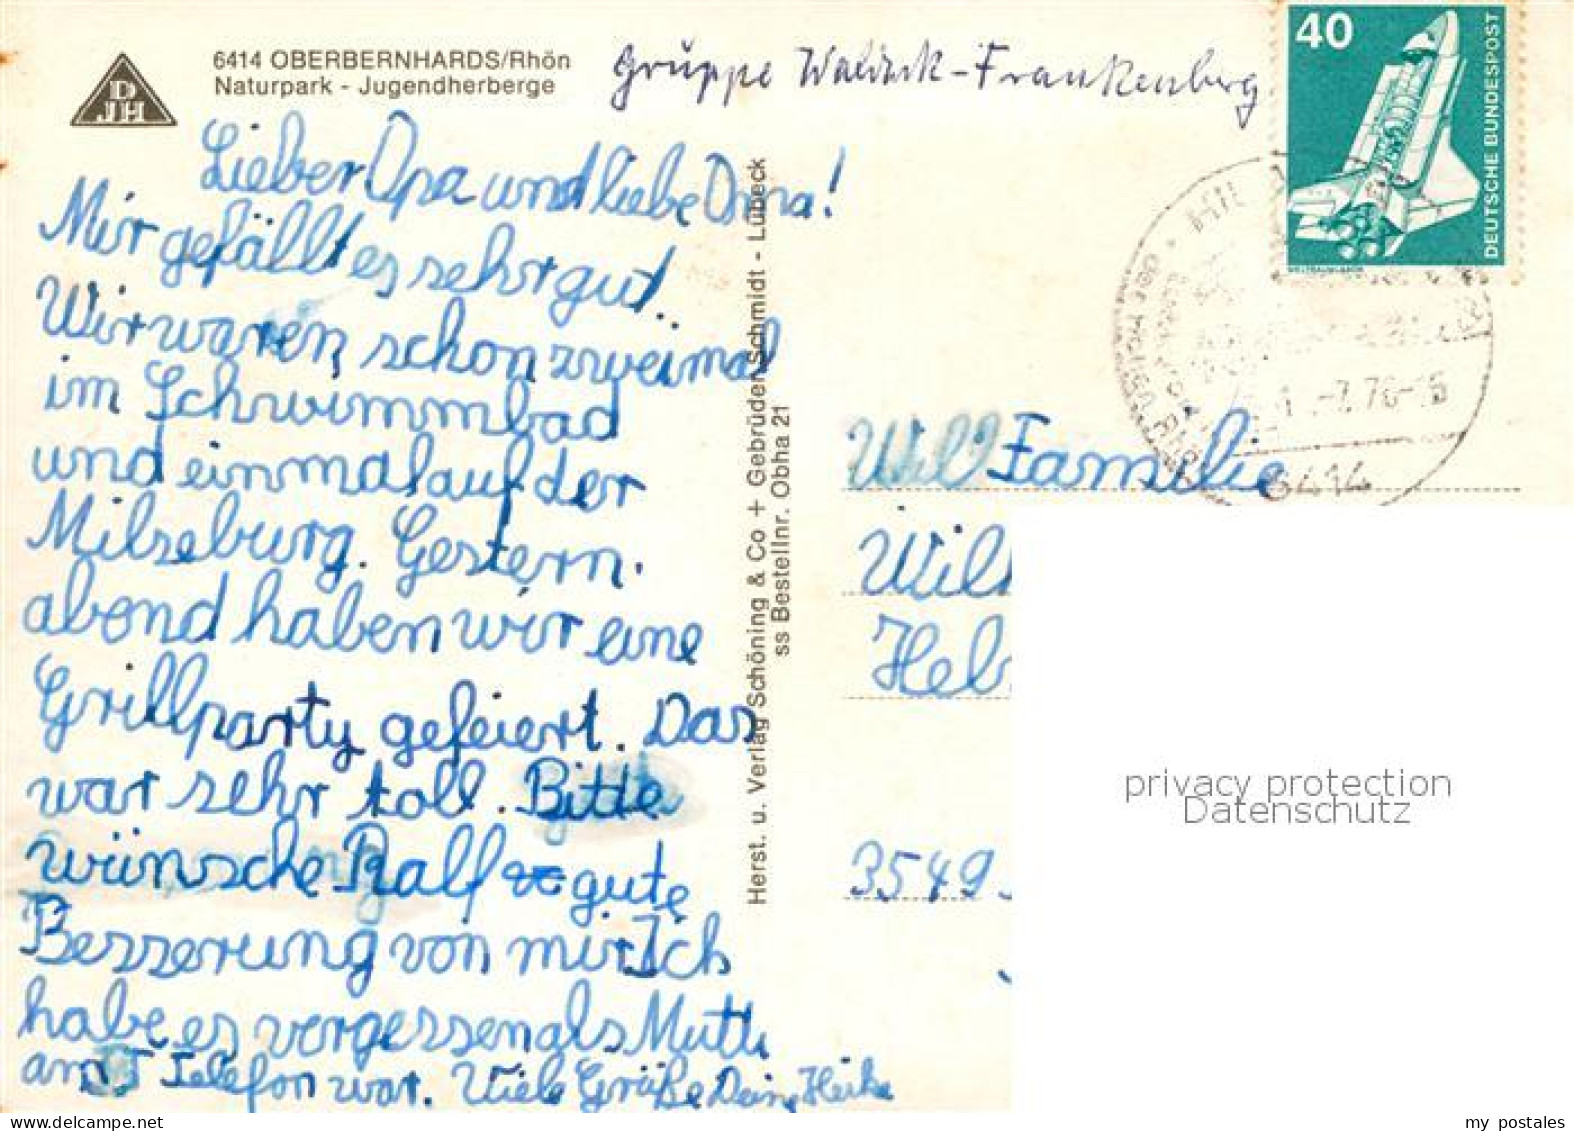 DJH
6414 OBERBERNHARDS/Rhön
Naturpark - Jugendherberge
Gruppe Waldeck-Frankenberg
40
DEUTSCHE BUNDESPOST
WELTRAUMLABOR
Lieber Opa und liebe Oma!
Mir gefällt es sehr gut.
Wir waren schon zweimal
im Schwimmbad
und einmal auf der
Milseburg. Gestern.
abend haben wir eine
Grillparty gefeiert. Das
war sehr toll. Bitte
wünsche Ralf gute
Besserung von mir. Ich
habe es vergessen als Mutti
am Telefon war. Viele Grüße Deine Heike
Herst. u. Verlag Schöning & Co + Gebrüder Schmidt - Lübeck
ss Bestellnr. Obha 21
-7.76-15
6414
Familie
Wil
Heb
3549
privacy protection
Datenschutz
my postales